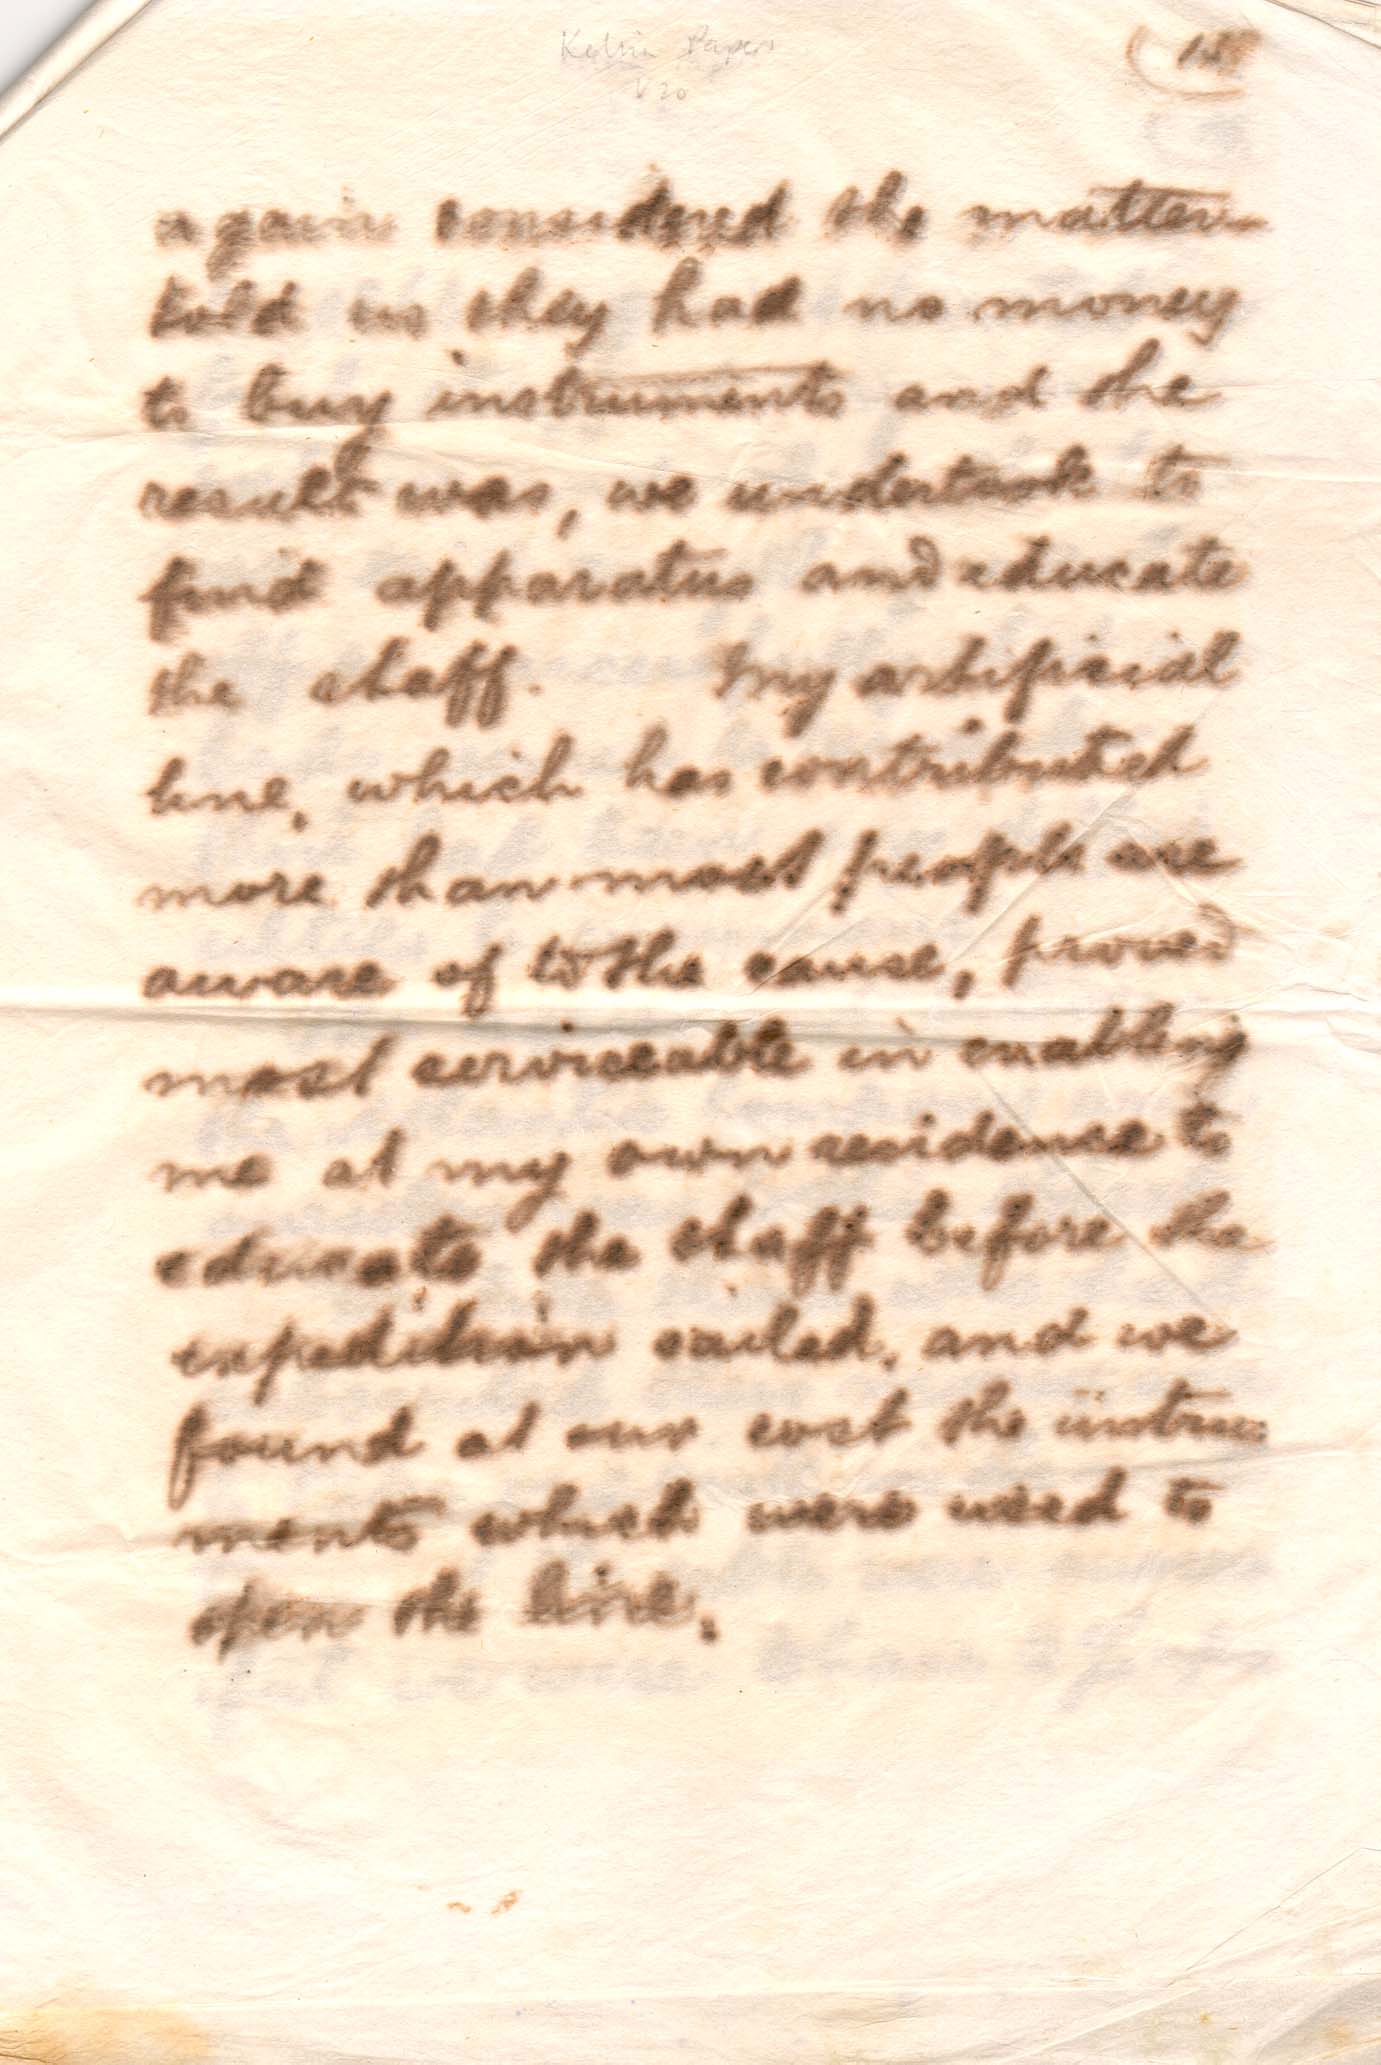 Kelvin Papers
V 20
again considered the matter
told us they had no money
to buy instruments and the
result was, we undertook to
find apparatus and educate
the staff. My artificial
line, which has contributed
more than most people are
aware of to the cause, proved
most serviceable in enabling
me at my own residence to
educate the staff before the
expedition sailed, and we
found at our cost the instru
ments which were used to
open the line.